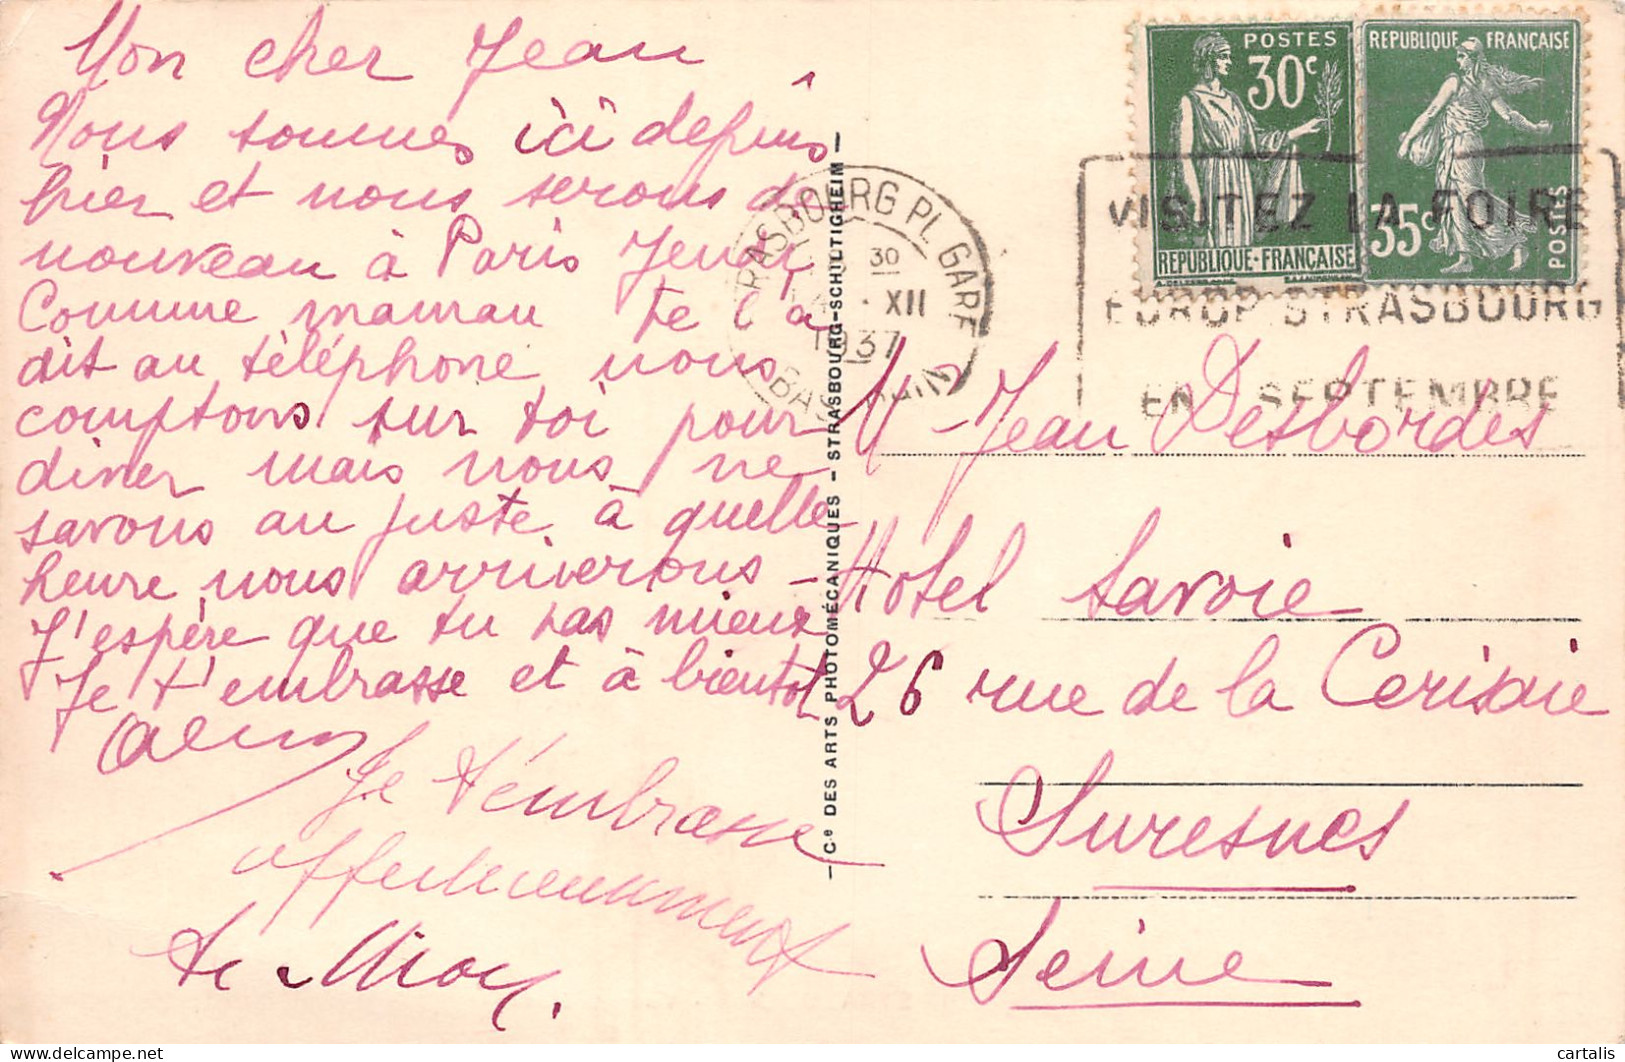 Mon cher Jean
Nous sommes ici depuis
hier et nous serons de
nouveau à Paris Jeudi
Comme maman te l'a
dit au téléphone nous
comptons sur toi pour
diner mais nous ne
savons au juste à quelle
heure nous arriverons -
J'espère que tu vas mieux
Je t'embrasse et à bientôt
Je t'embrasse
affectueusement
POSTES
30c
REPUBLIQUE-FRANÇAISE
REPUBLIQUE FRANÇAISE
35c
POSTES
STRASBOURG PL. GARE
30
XII
1937
BAS-RHIN
VISITEZ LA FOIRE
EUROP. STRASBOURG
EN SEPTEMBRE
- Cie DES ARTS PHOTOMÉCANIQUES - STRASBOURG-SCHILTIGHEIM -
Mr Jean Desbordes
Hotel Savoie
26 rue de la Cerisaie
Suresnes
Seine
cartalis
delcampe.net